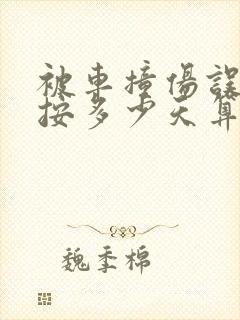 被車撞傷誤
按多少天算
魏季棉